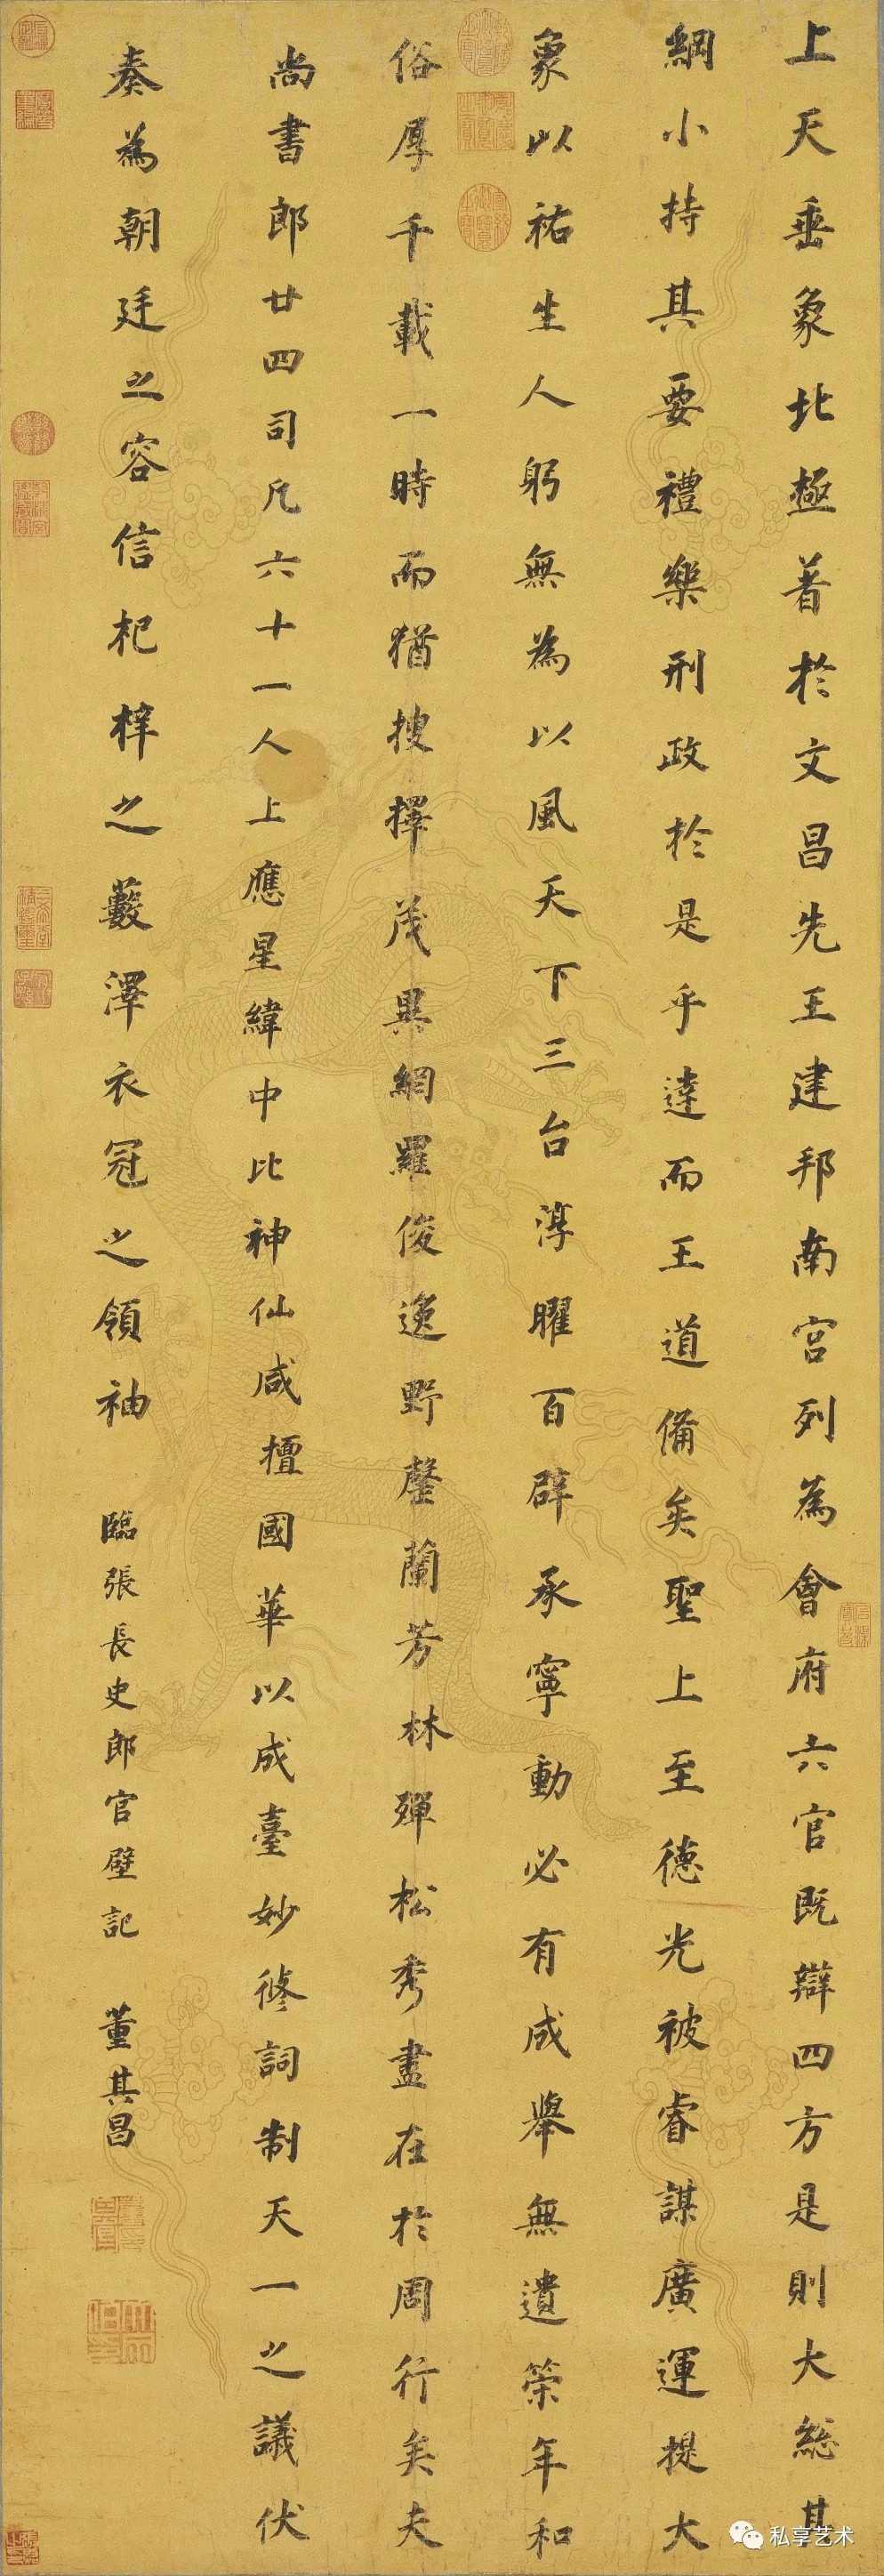 上天垂象北極著於文昌先王建邦南宮列為會府六官既辯四方是則大總其
綱小持其要禮樂刑政於是乎達而王道備矣聖上至德光被睿謀廣運提大
象以祐生人躬無為以風天下三台淳曜百辟承寧動必有成舉無遺策年和
俗厚千載一時而猶搜擇茂異網羅俊逸野罄蘭芳林殫松秀盡在於周行矣夫
尚書郎廿四司凡六十一人上應星緯中比神仙咸擅國華以成臺妙修詞制天一之議伏
奏為朝廷之容信杞梓之藪澤衣冠之領袖
臨張長史郎官壁記
董其昌
私享艺术